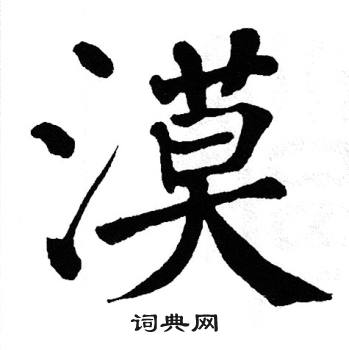 漠
词典网